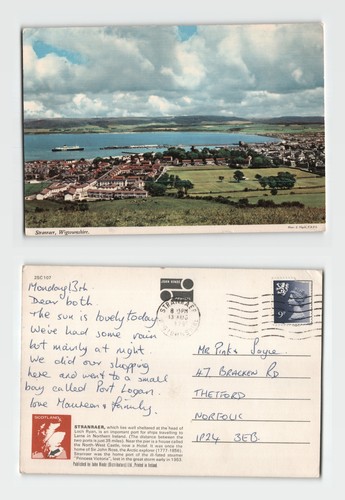 Stranraer, Wigtownshire.
DSC107
Monday 13th
Dear both.
The sun is lovely today.
We've had some rain
but mainly at night.
We did our shopping
here and went to a small
bay called Port Logan.
love Maureen & family.
STRANRAER
6 PM
13 AUG
9P
Mr Pink & Payne.
47 BRACKEN RD
THETFORD
NORFOLK
IP24 3EB.
SCOTLAND
STRANRAER, which lies well sheltered at the head of
Loch Ryan, is an important port for ships travelling to
Larne in Northern Ireland. (The distance between the
two ports is just 35 miles). Near the pier is a house called
the North-West Castle, now a Hotel. It was once the
home of Sir John Ross, the Arctic explorer (1777-1856).
Stranraer was the home port of the ill-fated steamer
"Princess Victoria", lost in the great storm early in 1953.
Published by John Hinde (Distributors) Ltd. Printed in Ireland.